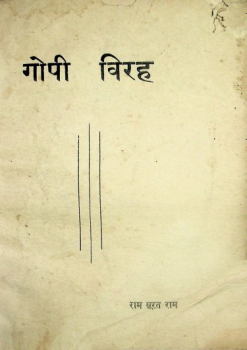 गोपी विरह
राम सूरत राम